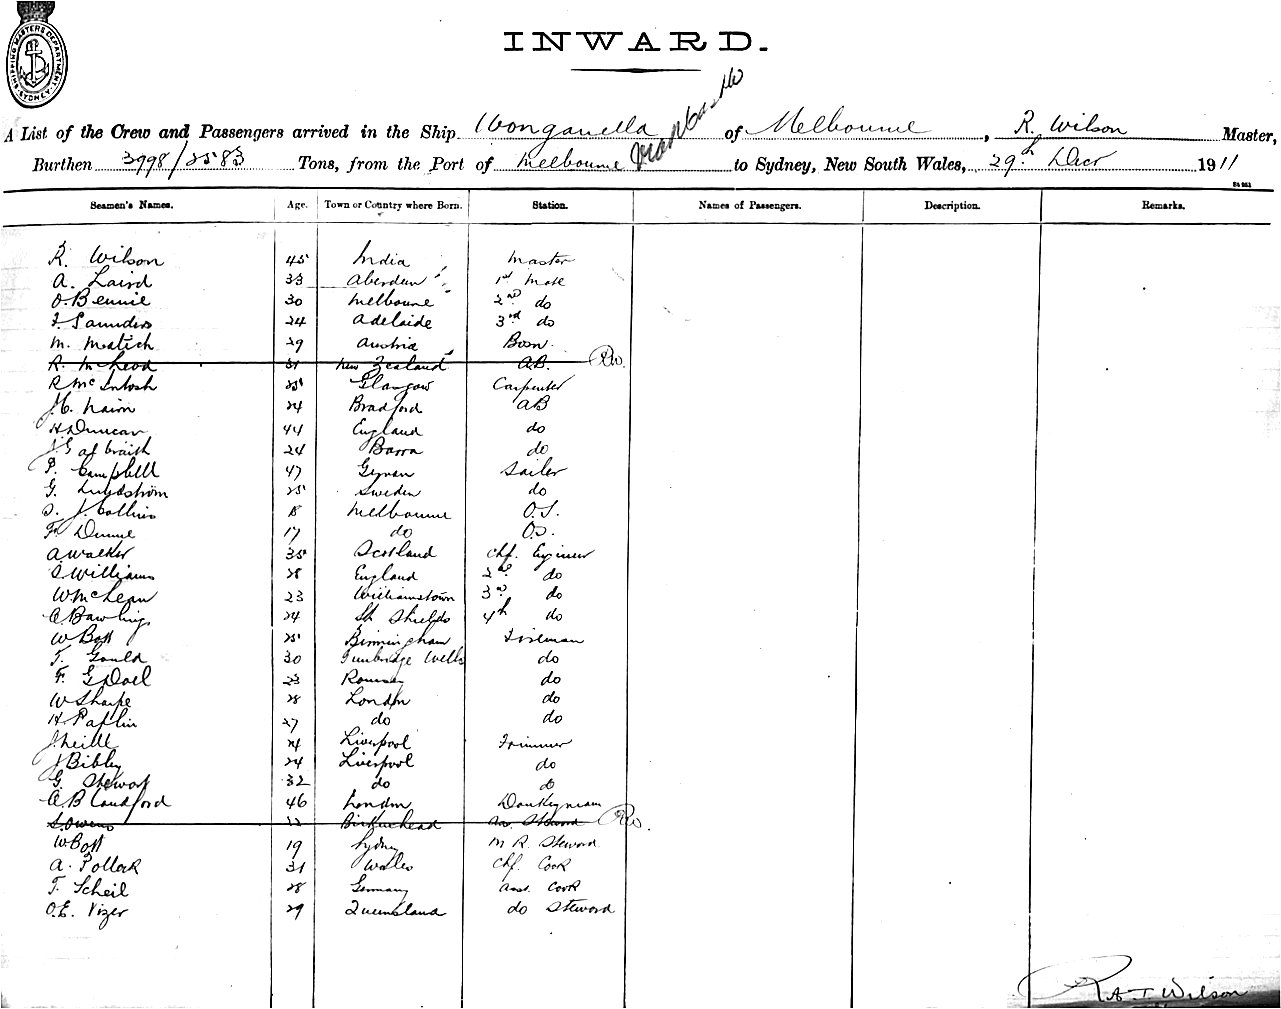 SHIPPING MASTERS DEPARTMENT SYDNEY
INWARD.
A List of the Crew and Passengers arrived in the Ship Wonganella of Melbourne, R. Wilson Master,
Burthen 3998/2583 Tons, from the Port of Melbourne to Sydney, New South Wales, 29th Decr 1911
Seamen's Names. Age. Town or Country where Born. Station. Names of Passengers. Description. Remarks.
R. Wilson 45 India Master
A. Laird 33 Aberdeen 1st Mate
O. Bennie 30 Melbourne 2nd do
Saunders 24 Adelaide 3rd do
M. Matich 29 Austria Bosn.
R. McLeod 31 New Zealand A.B. RW.
R McIntosh 25 Glasgow Carpenter
Nairn 24 Bradford AB
H Duncan 44 England do
24 Barra do
P. Campbell 47 Sailor
G. Lundström 25 Sweden do
J. Collins 18 Melbourne O.S.
F. Dunne 17 do O.S.
A Walker 35 Scotland Chf. Engineer
Williams 28 England 2nd do
W McLean 23 Williamstown 3rd do
Rawlings 24 Sth Shields 4th do
W Bott 25 Birmingham Fireman
T. Gould 30 Tunbridge Wells do
F. G Doel 23 Romsey do
W Sharpe 28 London do
H. Paplin 27 do do
J. Neill 24 Liverpool Trimmer
J Bibby 24 Liverpool do
G. Stewart 32 do do
Landford 46 London Donkeyman
S. Owens 32 Birkenhead Steward RW.
W Bott 19 Sydney M R. Steward
A. Pollock 31 Wales Chf. Cook
T. Scheil 28 Germany asst. Cook
O.E. Vizer 29 Queensland do Steward
R A T Wilson